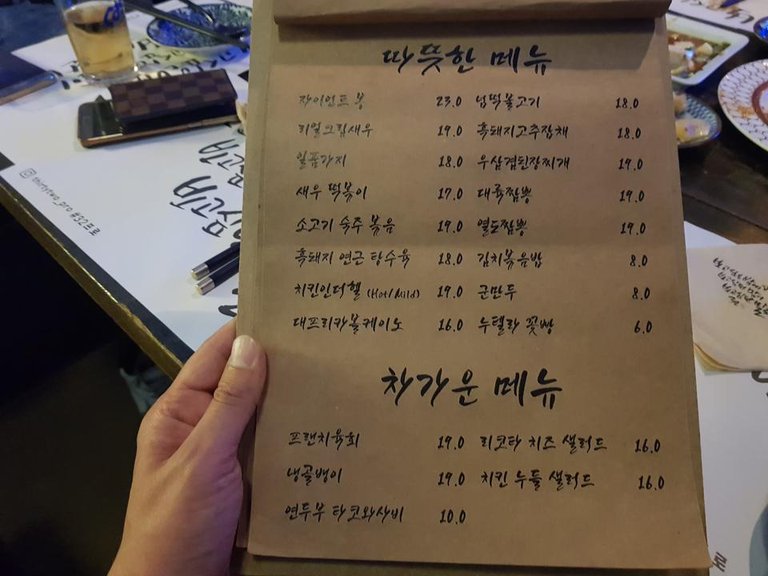 따뜻한 메뉴
자이언트 봉 23.0 넙떡불고기 18.0
리얼크림새우 19.0 흑돼지고추잡채 18.0
일품가지 18.0 우삼겹된장찌개 19.0
새우 떡볶이 17.0 대륙짬뽕 19.0
소고기 숙주 볶음 19.0 열도짬뽕 19.0
흑돼지 연근 탕수육 18.0 김치볶음밥 8.0
치킨인더헬 (Hot/Mild) 19.0 군만두 8.0
대프리카볼케이노 16.0 누텔라 꽃빵 6.0
차가운 메뉴
프랜치육회 19.0 리코타 치즈 샐러드 16.0
냉골뱅이 19.0 치킨 누들 샐러드 16.0
연두부 타코와사비 10.0
thirtytwo_pro #32프로